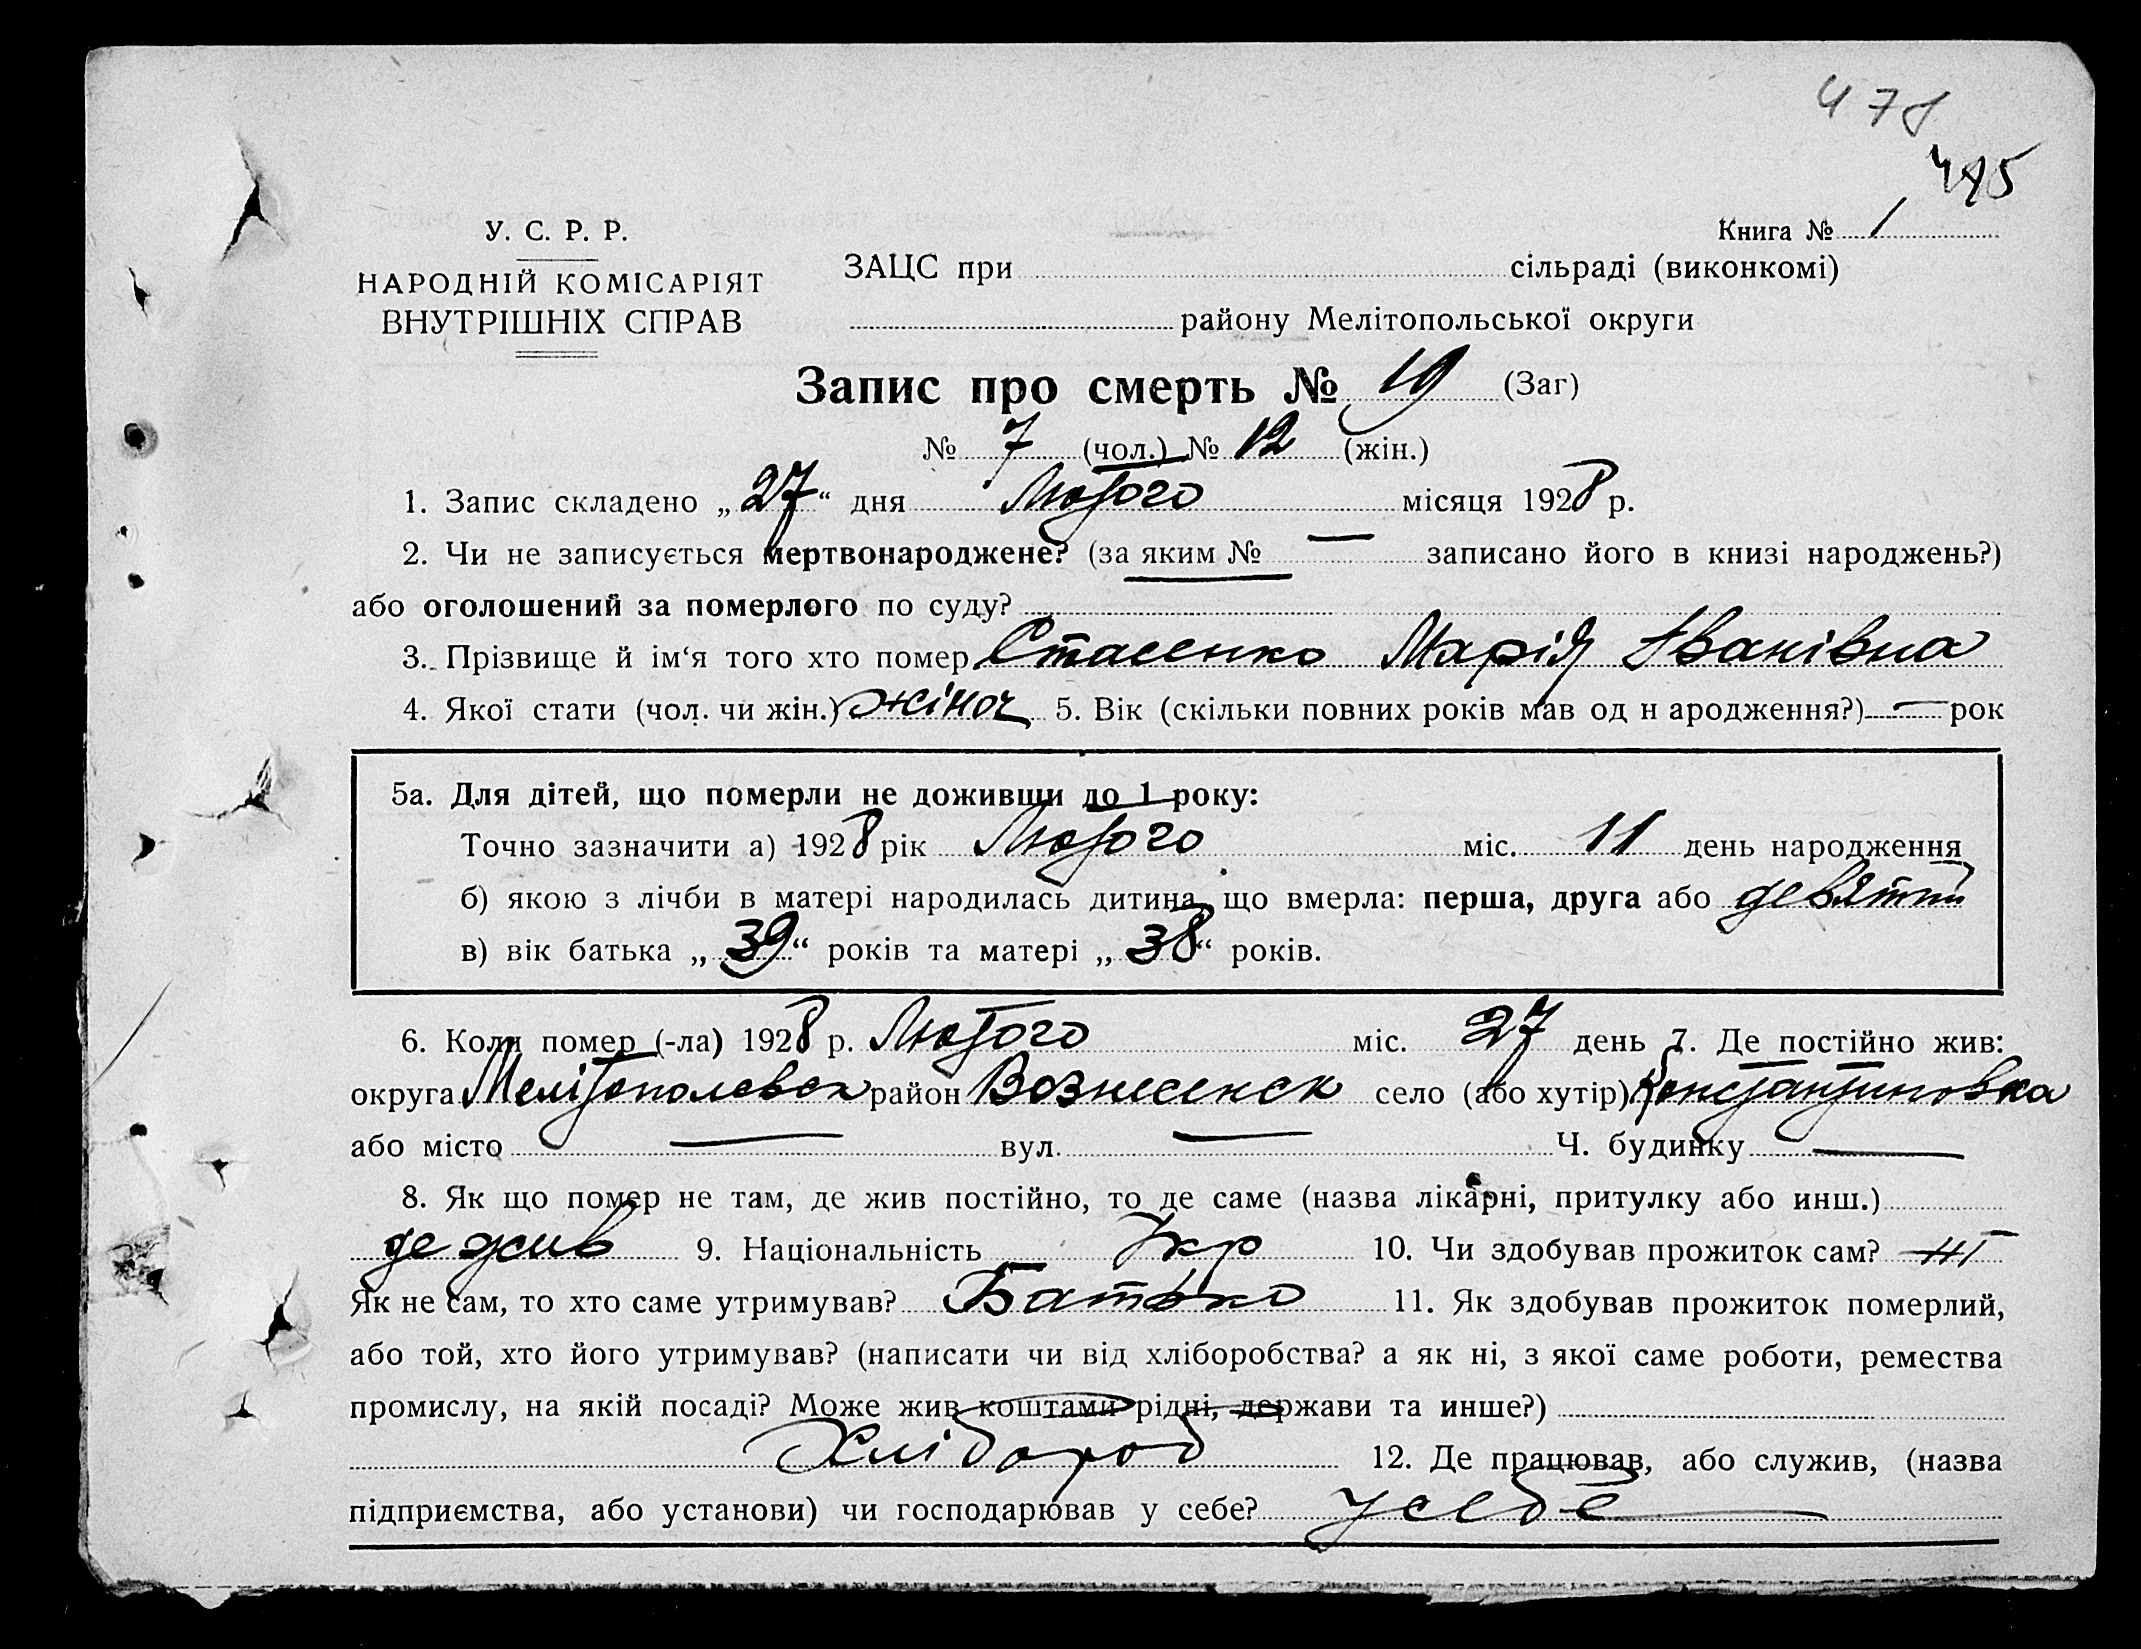 478
495
У. С. Р. Р.
Книга № 1
НАРОДНІЙ КОМІСАРІЯТ
ВНУТРІШНІХ СПРАВ
ЗАЦС при сільраді (виконкомі)
району Мелітопольської округи
Запис про смерть № 19 (Заг)
№ 7 (чол.) № 12 (жін.)
1. Запис складено „27“ дня Лютого місяця 1928 р.
2. Чи не записується мертвонароджене? (за яким № — записано його в книзі народжень?)
або оголошений за померлого по суду?
3. Прізвище й ім‘я того хто помер Стасенко Марія Іванівна
4. Якої стати (чол. чи жін.) жіноч 5. Вік (скільки повних років мав од н ародження?) — рок
5а. Для дітей, що померли не доживши до 1 року:
Точно зазначити а) 1928 рік Лютого міс. 11 день народження
б) якою з лічби в матері народилась дитина, що вмерла: перша, друга або девятий
в) вік батька „39“ років та матері „38“ років.
6. Коли помер (-ла) 1928 р. Лютого міс. 27 день 7. Де постійно жив:
округа Мелітопольськ район Вознесенск село (або хутір) Константиновка
або місто — вул. — Ч. будинку —
8. Як що помер не там, де жив постійно, то де саме (назва лікарні, притулку або инш.)
де жив 9. Національність Укр 10. Чи здобував прожиток сам? ні
Як не сам, то хто саме утримував? Батько 11. Як здобував прожиток померлий,
або той, хто його утримував? (написати чи від хліборобства? а як ні, з якої саме роботи, ремества
промислу, на якій посаді? Може жив коштами рідні, держави та инше?)
Хлібороб 12. Де працював, або служив, (назва
підприємства, або установи) чи господарював у себе? у себе